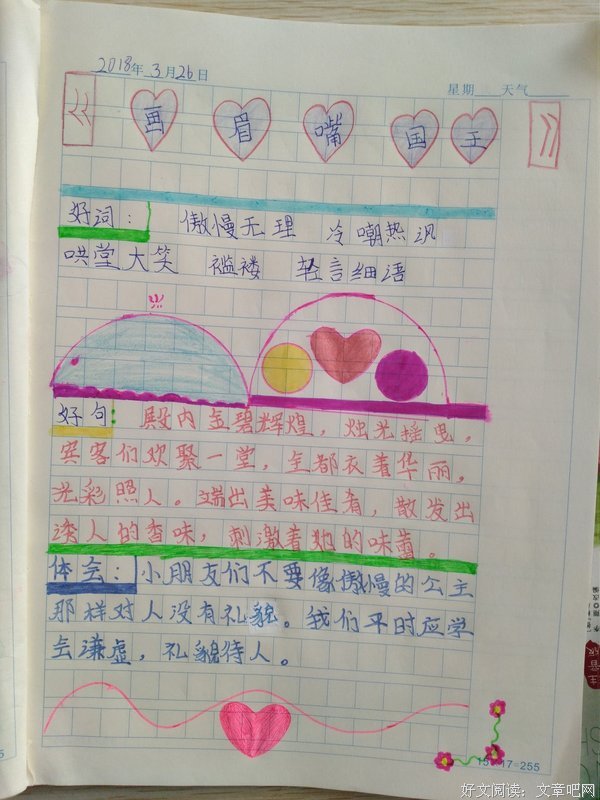 2018年3月26日
星期 天气
《画眉嘴国王》
好词: 傲慢无理 冷嘲热讽
哄堂大笑 褴褛 轻言细语
好句: 殿内金碧辉煌，烛光摇曳，
宾客们欢聚一堂，全都衣着华丽，
光彩照人。端出美味佳肴，散发出
诱人的香味，刺激着她的味蕾。
体会: 小朋友们不要像傲慢的公主
那样对人没有礼貌。我们平时应学
会谦虚，礼貌待人。
15×17=255
好文阅读：文章吧网